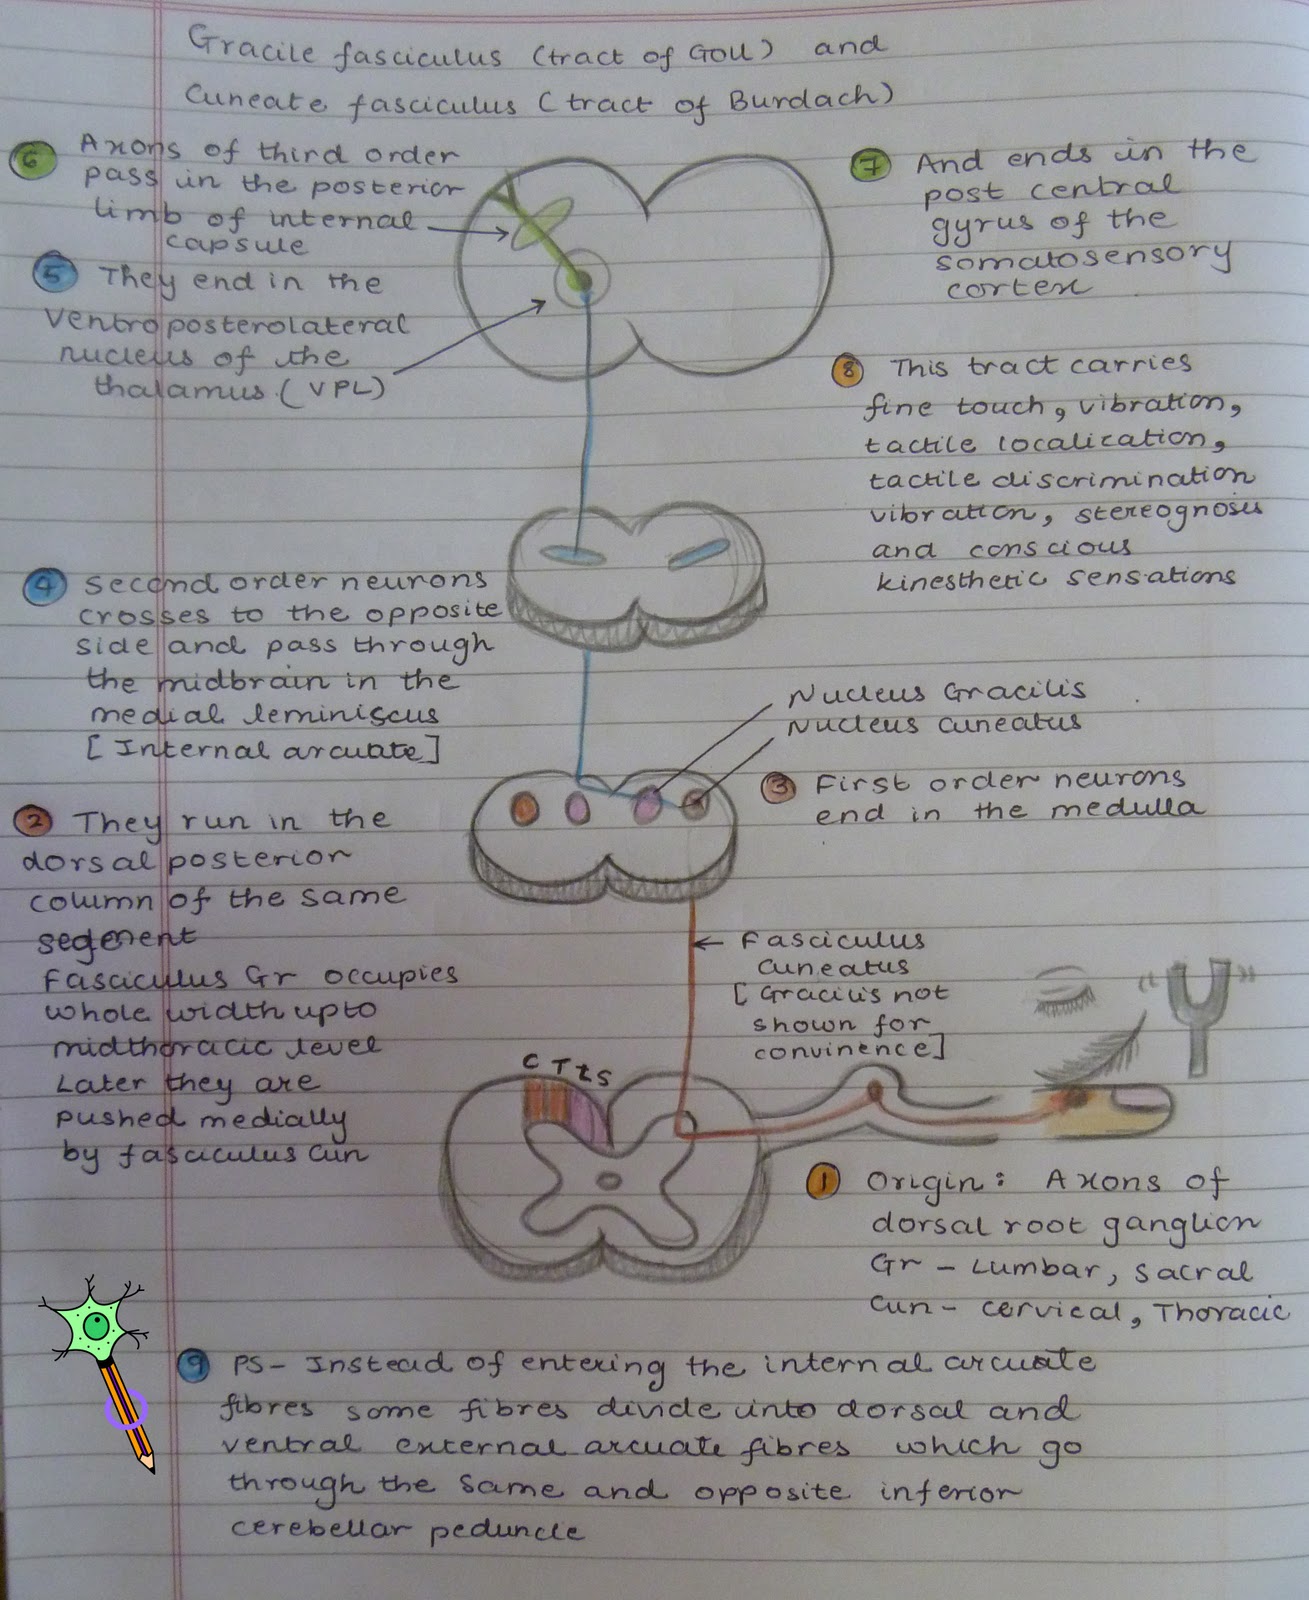 Gracile fasciculus (tract of Goll) and
Cuneate fasciculus (tract of Burdach)
6 Axons of third order
pass in the posterior
limb of internal
capsule
5 They end in the
Ventroposterolateral
nucleus of the
thalamus (VPL)
7 And ends in the
post central
gyrus of the
somatosensory
cortex
8 This tract carries
fine touch, vibration,
tactile localization,
tactile discrimination
vibration, stereognosis
and conscious
kinesthetic sensations
4 Second order neurons
crosses to the opposite
side and pass through
the midbrain in the
medial leminiscus
[Internal arcuate]
Nucleus Gracilis
Nucleus cuneatus
3 First order neurons
end in the medulla
2 They run in the
dorsal posterior
column of the same
segment
Fasciculus Gr occupies
whole width upto
midthoracic level
Later they are
pushed medially
by fasciculus Cun
Fasciculus
cuneatus
[Gracilis not
shown for
convinence]
C T L S
1 Origin: Axons of
dorsal root ganglion
Gr - Lumbar, sacral
Cun - cervical, Thoracic
9 PS- Instead of entering the internal arcuate
fibres some fibres divide into dorsal and
ventral external arcuate fibres which go
through the same and opposite inferior
cerebellar peduncle